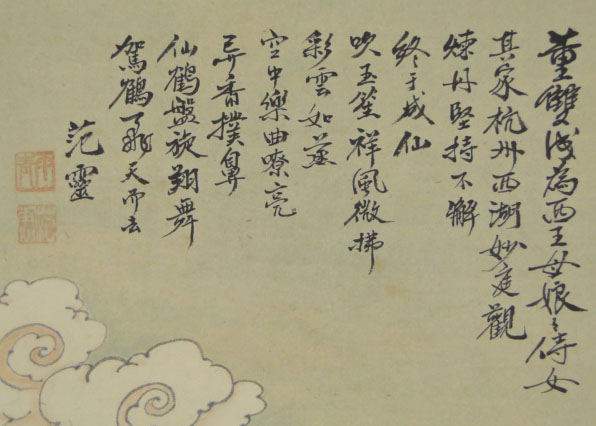 董雙成為西王母娘々侍女
其家杭州西湖妙庭觀
煉丹堅持不懈
終于成仙
吹玉笙祥風微拂
彩雲如蓋
空中樂曲嘹亮
异香撲鼻
仙鶴盤旋翔舞
駕鶴飛天而去
范靈